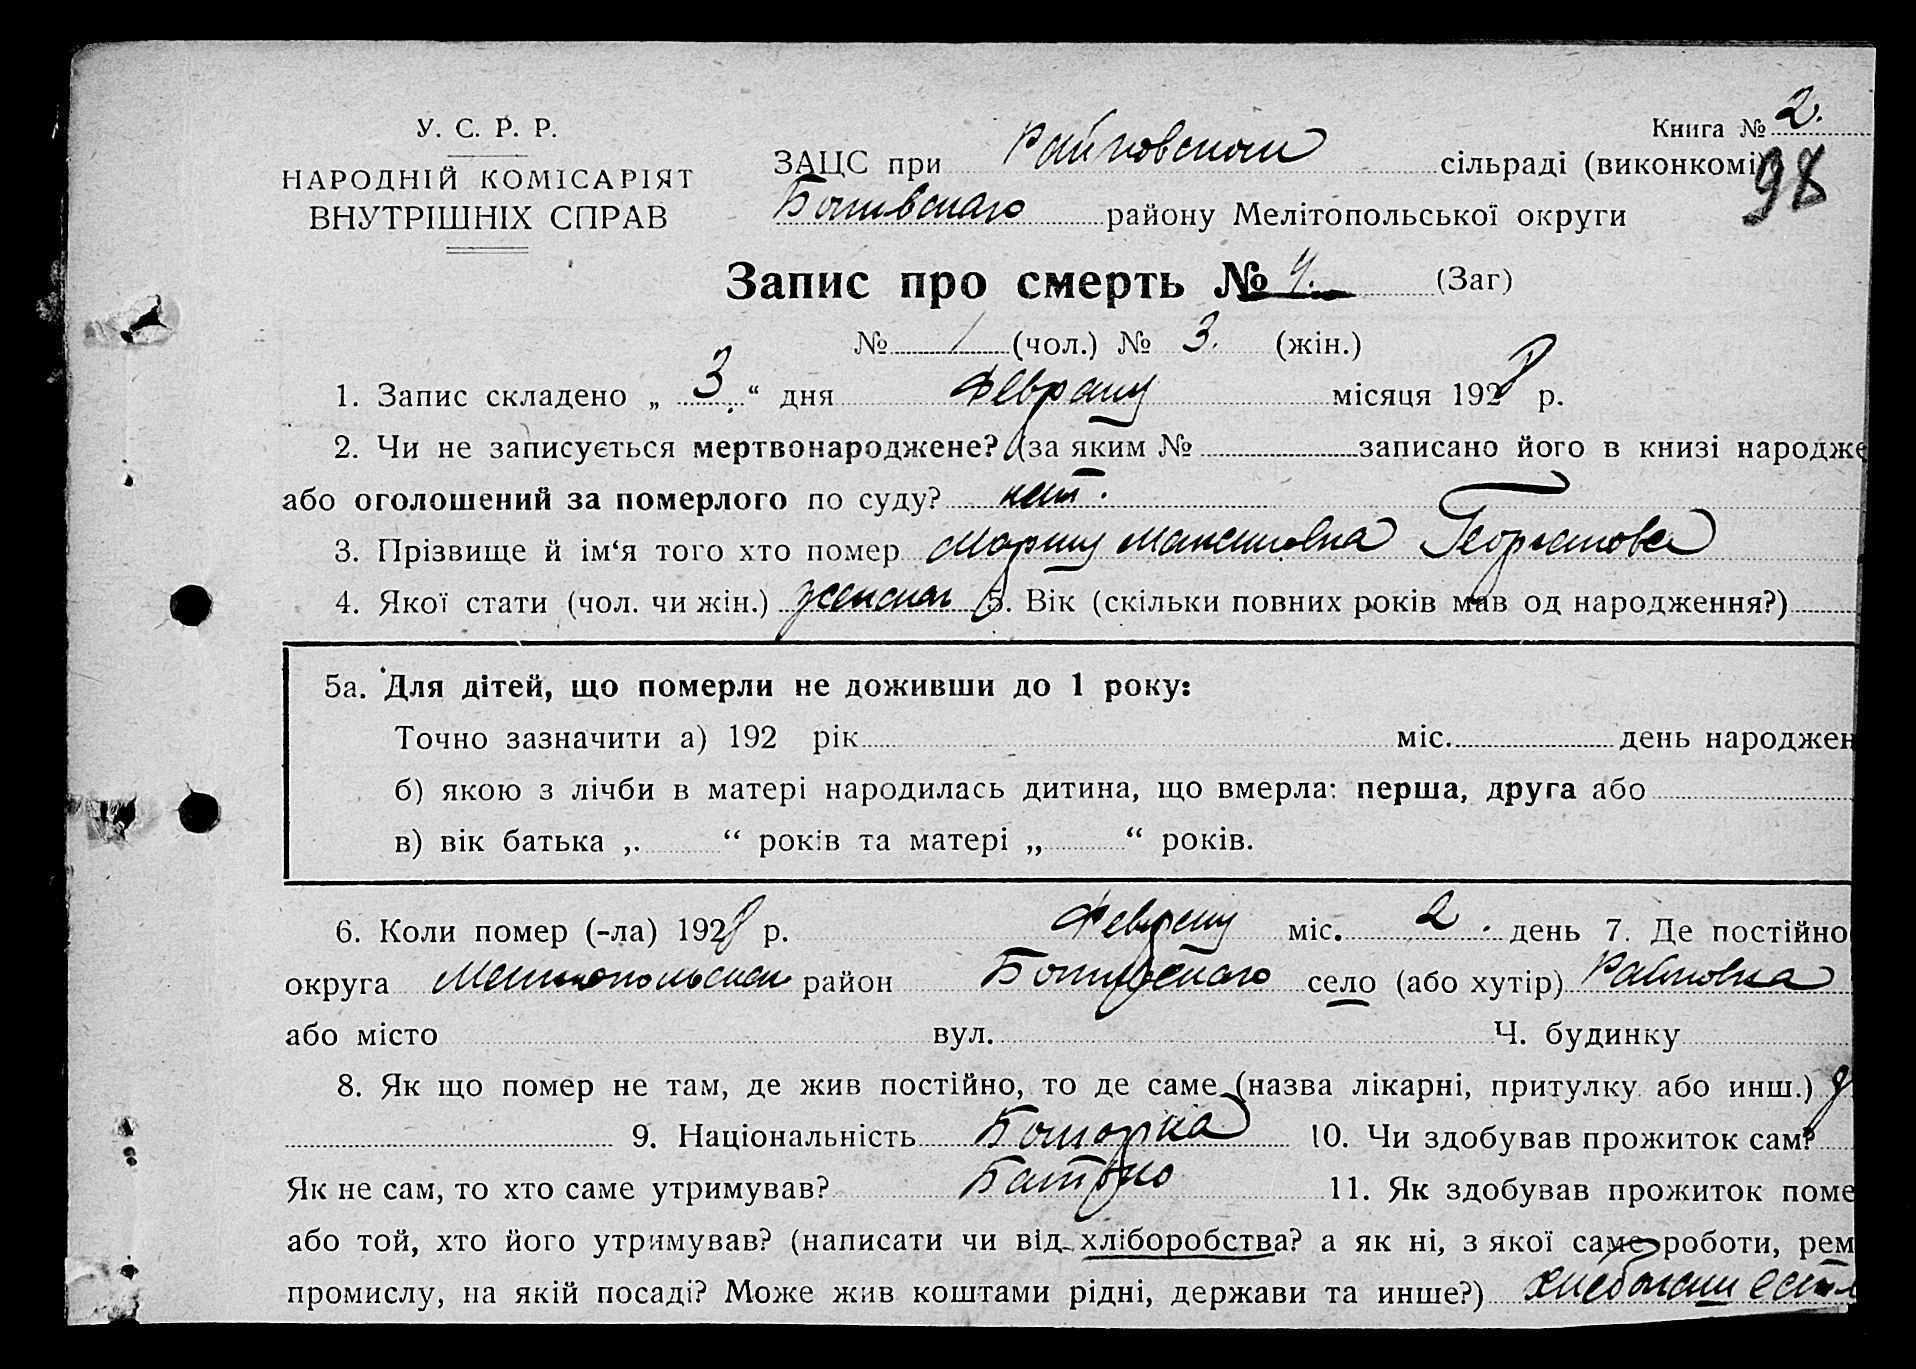 Книга № 2.
98
У. С. Р. Р.
НАРОДНІЙ КОМІСАРІЯТ
ВНУТРІШНІХ СПРАВ
ЗАЦС при Райновском сільраді (виконкомі)
Ботивскаго району Мелітопольської округи
Запис про смерть № 4. (Заг)
№ 1 (чол.) № 3. (жін.)
1. Запис складено „ 3 “ дня Февраля місяця 1928 р.
2. Чи не записується мертвонароджене? (за яким № записано його в книзі народже
або оголошений за померлого по суду? нет.
3. Прізвище й ім‘я того хто помер Мария Максимовна
4. Якої стати (чол. чи жін.) женская 5. Вік (скільки повних років мав од народження?)
5а. Для дітей, що померли не доживши до 1 року:
Точно зазначити а) 192 рік міс. день народжен
б) якою з лічби в матері народилась дитина, що вмерла: перша, друга або
в) вік батька „ “ років та матері „ “ років.
6. Коли помер (-ла) 1928 р. Февраля міс. 2 день 7. Де постійно
округа Мелитопольская район Ботивскаго село (або хутір) Райновка
або місто вул. Ч. будинку
8. Як що помер не там, де жив постійно, то де саме (назва лікарні, притулку або инш.)
9. Національність Болгарка 10. Чи здобував прожиток сам?
Як не сам, то хто саме утримував? 11. Як здобував прожиток поме
або той, хто його утримував? (написати чи від хліборобства? а як ні, з якої саме роботи, рем
промислу, на якій посаді? Може жив коштами рідні, держави та инше?)